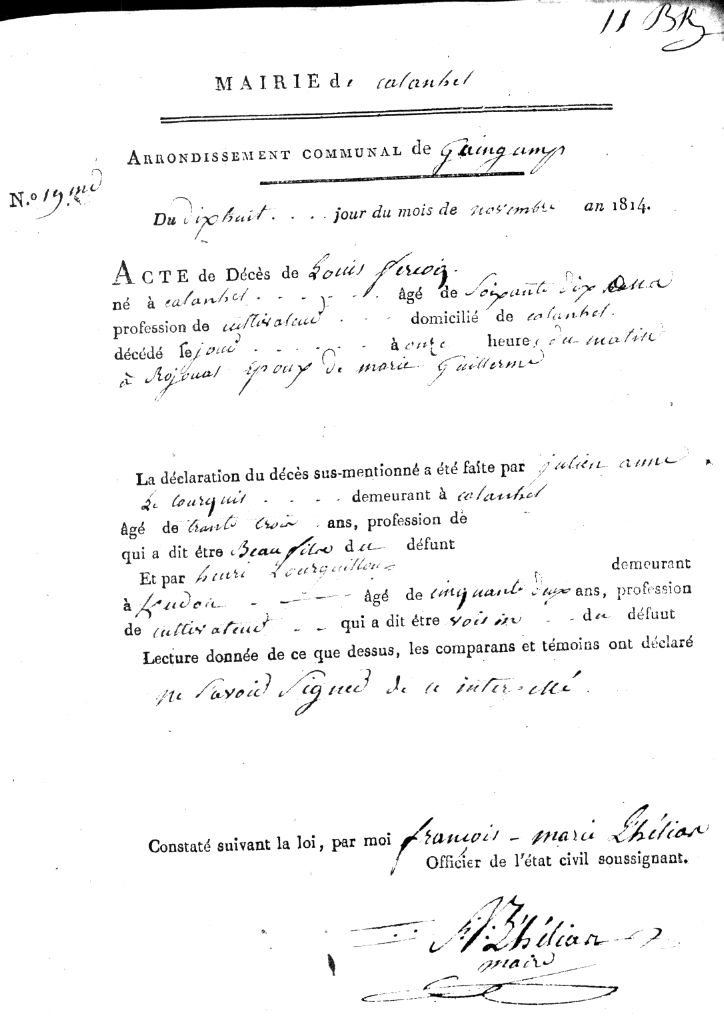 11 BK
MAIRIE de calanhel
ARRONDISSEMENT COMMUNAL de Guingamp
N.o 19 me
Du dixhuit . . . . jour du mois de novembre an 1814.
ACTE de Décès de Louis
né à calanhel . - - . - . âgé de Soixante dix ans
profession de cultivateur . - - domicilié de calanhel.
décédé le jour . - - . - . à onze heures du matin
à Epoux de marie Guillerme
La déclaration du décès sus-mentionné a été faite par julien anne
Le courquis . - - . - demeurant à calanhel
âgé de trante trois ans, profession de
qui a dit être Beau fils du défunt
Et par henri demeurant
à . - — - âgé de cinquante deux ans, profession
de cultivateur . - qui a dit être voisin . . du défunt
Lecture donnée de ce que dessus, les comparans et témoins ont déclaré
ne Savoir Signer de ce interpellé.
Constaté suivant la loi, par moi françois - marie L'hélian
Officier de l'état civil soussignant.
L'hélian
maire